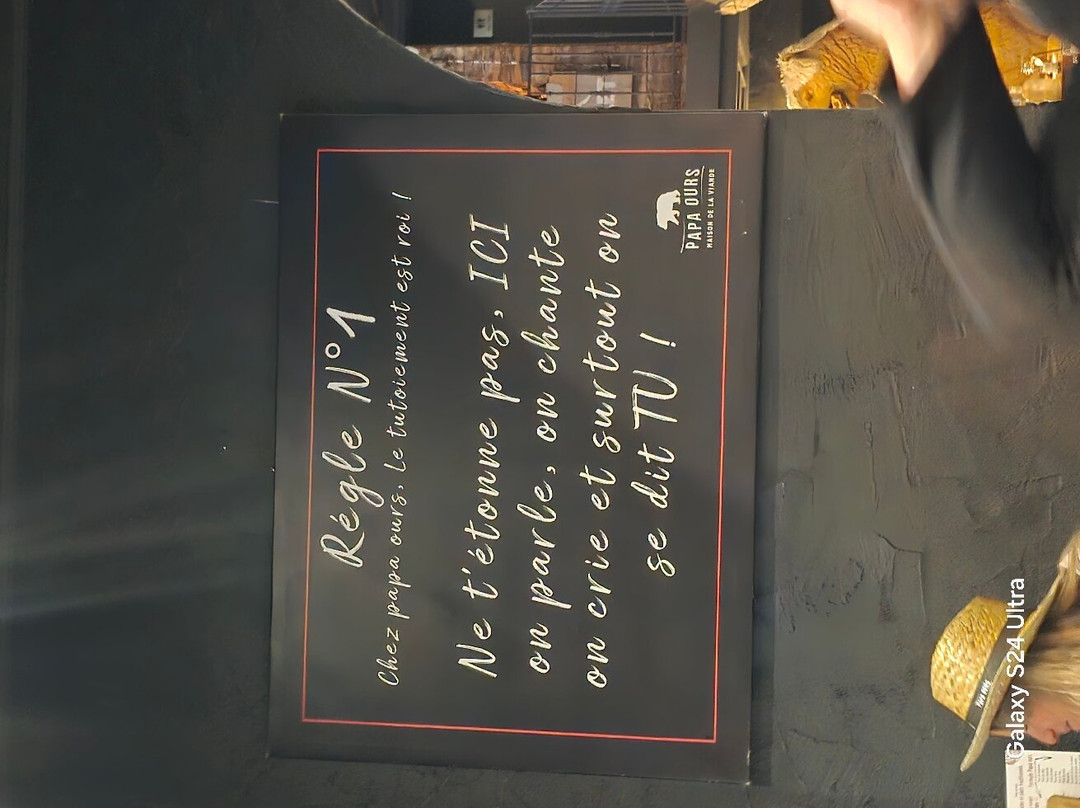 Régle N°1
Chez papa ours, le tutoiement est roi !
Ne t'étonne pas, ICI
on parle, on chante
on crie et surtout on
se dit TU !
PAPA OURS
MAISON DE LA VIANDE
Galaxy S24 Ultra